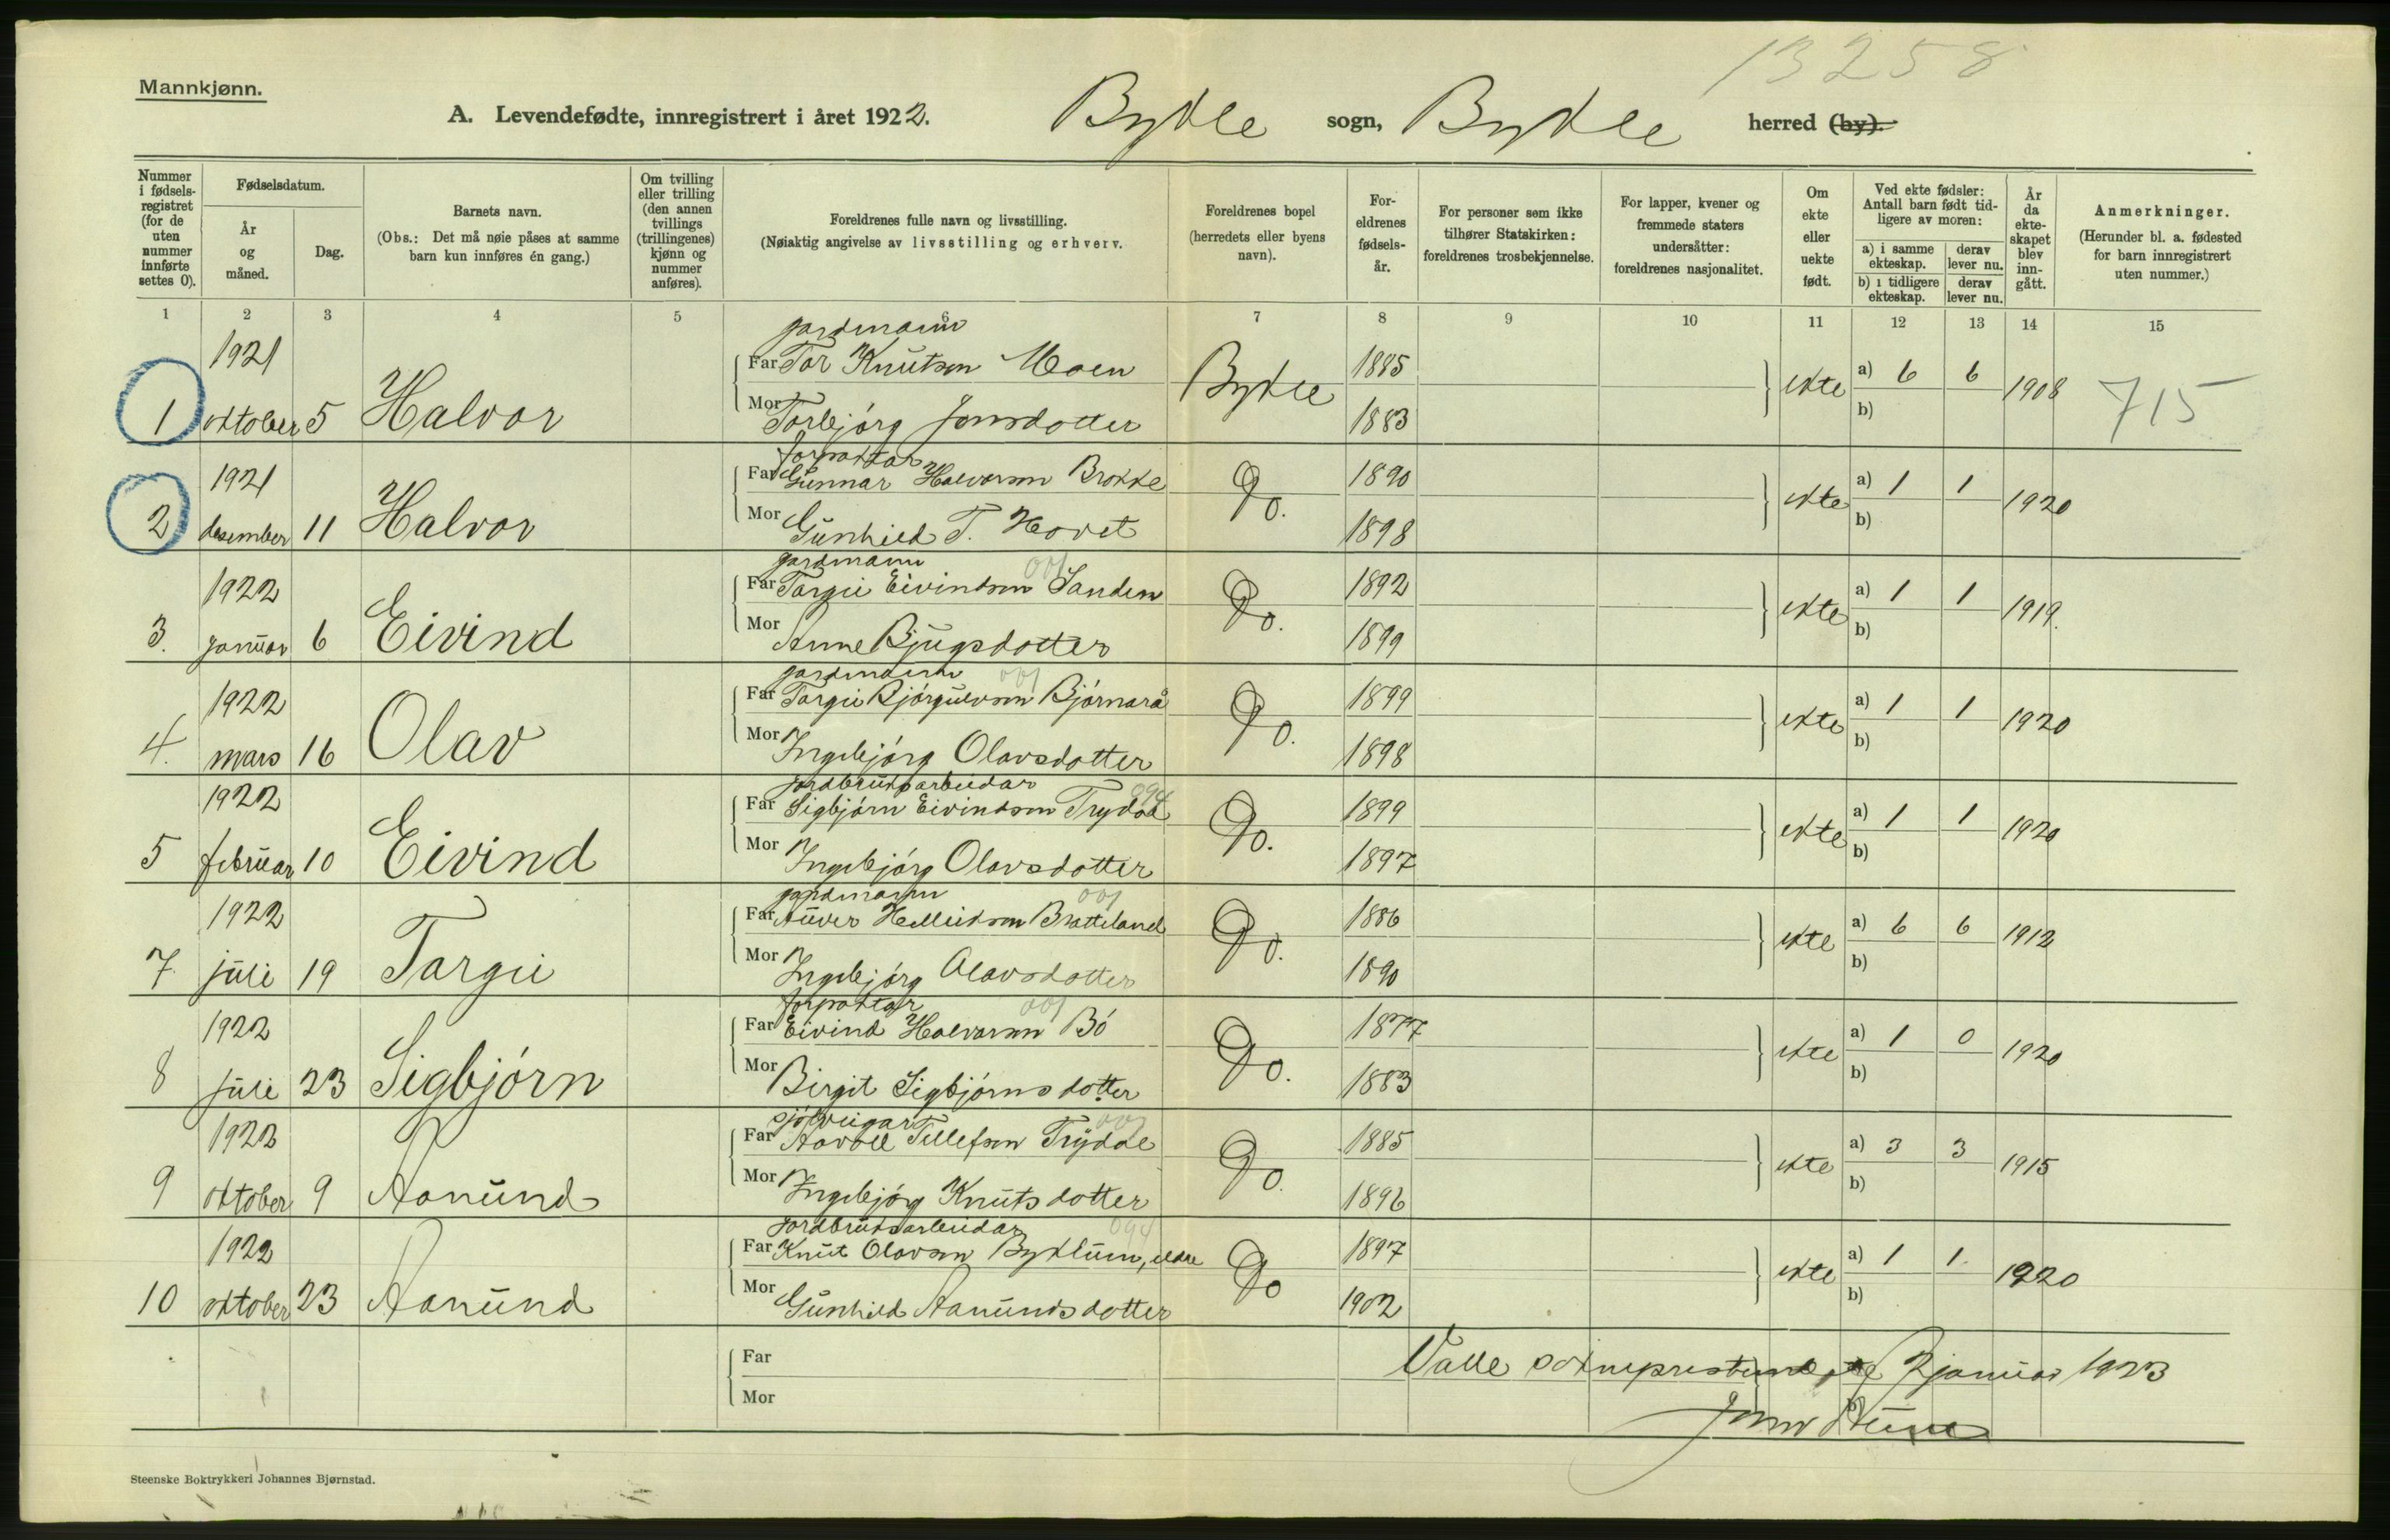 13258
Mannkjønn.
A. Levendefødte, innregistrert i året 1922. Bykle sogn, Bykle herred (by).
Nummer i fødsels-registret (for de uten nummer innførte settes 0).
Fødselsdatum.
År og måned.
Dag.
Barnets navn.
(Obs.: Det må nøie påses at samme barn kun innføres én gang.)
Om tvilling eller trilling (den annen tvillings (trillingenes) kjønn og nummer anføres).
Foreldrenes fulle navn og livsstilling.
(Nøiaktig angivelse av livsstilling og erhverv.
Foreldrenes bopel (herredets eller byens navn).
For-eldrenes fødsels-år.
For personer som ikke tilhører Statskirken: foreldrenes trosbekjennelse.
For lapper, kvener og fremmede staters undersåtter: foreldrenes nasjonalitet.
Om ekte eller uekte født.
Ved ekte fødsler: Antall barn født tid-ligere av moren:
a) i samme ekteskap.
derav lever nu.
b) i tidligere ekteskap.
derav lever nu.
År da ekte-skapet blev inn-gått.
Anmerkninger.
(Herunder bl. a. fødested for barn innregistrert uten nummer.)
1 2 3 4 5 6 7 8 9 10 11 12 13 14 15
gardmann
1921 Far Tor Knutson Moen Bykle 1885 ekte a) 6 6 1908 715
1 oktober 5 Halvor Mor Torbjörg Jonsdotter 1883 b)
forpaktar
1921 Far Gunnar Halvorson Brokke Do. 1890 ekte a) 1 1 1920
2 desember 11 Halvor Mor Gunhild T. Hovet 1898 b)
gardmann 001
1922 Far Targei Eivindson Sanden Do. 1892 ekte a) 1 1 1919.
3. januar 6 Eivind Mor Anne Bjugsdotter 1899 b)
gardmann 001
1922 Far Torgei Bjørgulvson Björnarå Do. 1899 ekte a) 1 1 1920
4. mars 16 Olav Mor Ingebjörg Olavsdotter 1898 b)
jordbruksarbeidar 094
1922 Far Sigbjörn Eivindson Trydal Do. 1899 ekte a) 1 1 1920
5 februar 10 Eivind Mor Ingebjörg Olavsdotter 1897 b)
gardmann 001
1922 Far Auver Helleikson Bratteland Do. 1886 ekte a) 6 6 1912
7. juli 19 Targei Mor Ingebjörg Olavsdotter 1890 b)
forpaktar 001
1922 Far Eivind Halvorson Bö Do. 1877 ekte a) 1 0 1920
8 juli 23 Sigbjörn Mor Birgit Sigbjörnsdotter 1883 b)
sjöleigar 001
1922 Far Tellefson Do. 1885 ekte a) 3 3 1915
9 oktober 9 Aanund Mor Ingebjörg Knutsdotter 1896 b)
jordbruksarbeidar 094
1922 Far Knut Olavson Byklum, eldre Do 1897 ekte a) 1 1 1920
10 oktober 23 Aanund Mor Gunhild Aanundsdotter 1902 b)
Far
Mor
Valle 2 januar 1923
Steenske Boktrykkeri Johannes Bjørnstad.